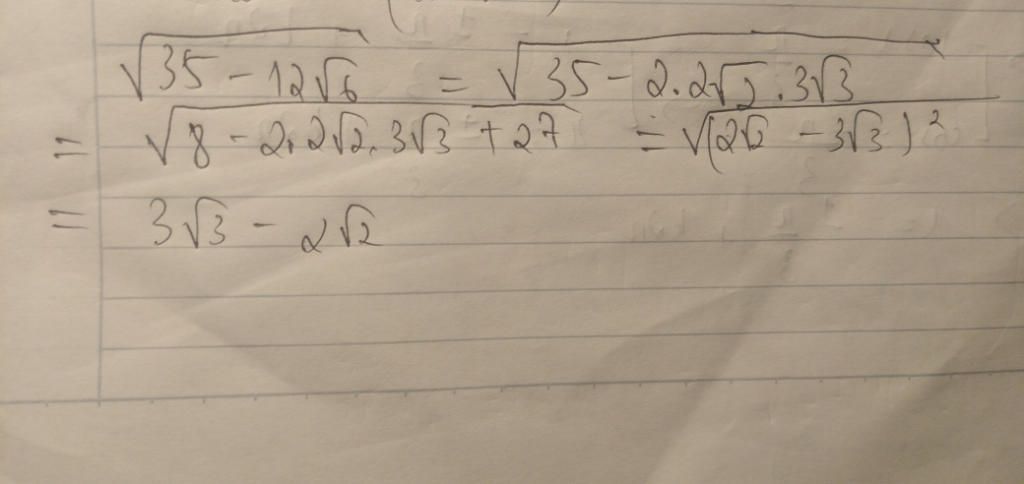 √35 - 12√6 = √35 - 2.2√2.3√3
= √8 - 2.2√2.3√3 + 27 = √(2√2 - 3√3)²
= 3√3 - 2√2